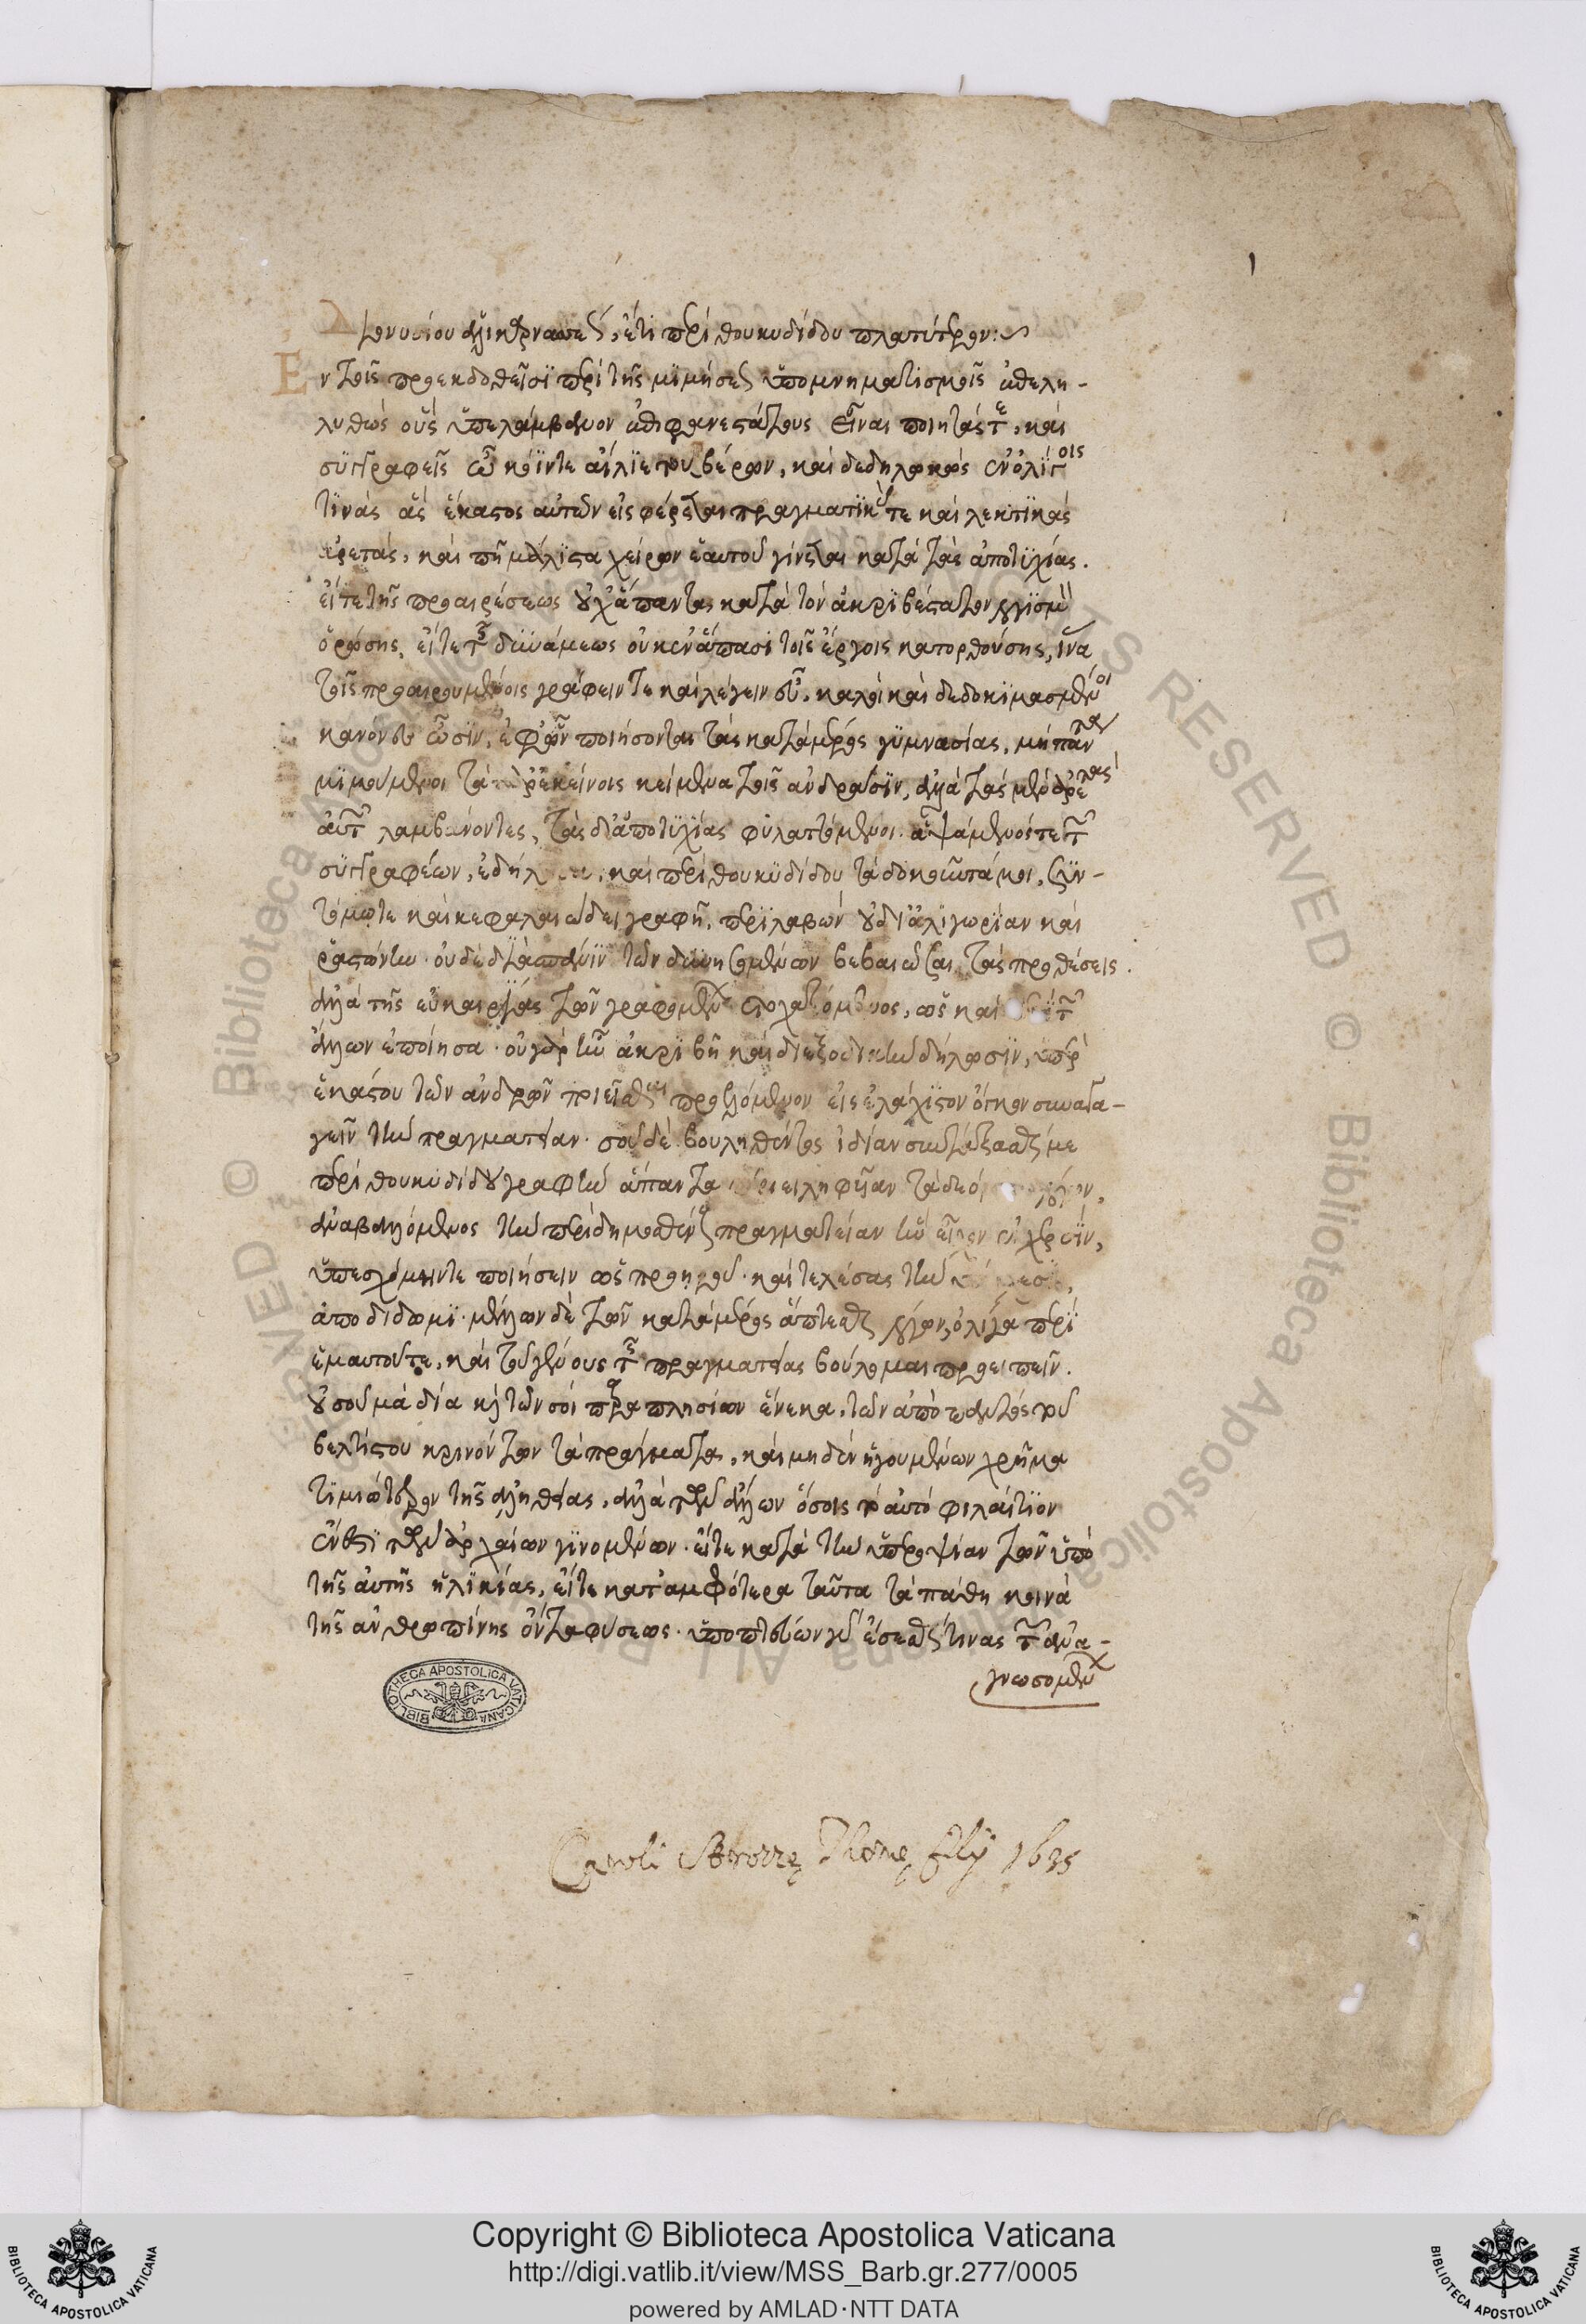 1
Διονυσίου ἁλικαρνασέως, ἔτι περὶ θουκυδίδου πλατύτερον:~
Ἐν τοῖς προεκδοθεῖσι περὶ τῆς μιμήσεως ὑπομνηματισμοῖς ἐπελη-
λυθὼς οὓς ὑπελάμβανον ἐπιφανεστάτους εἶναι ποιητάς τε, καὶ
συγγραφεῖς ὦ κόϊντε αἴλιε τουβέρων, καὶ δεδηλωκὼς ἐν ὀλίγοις
τινὰς ἃς ἕκαστος αὐτῶν εἰσφέρεται πραγματικάς τε καὶ λεκτικὰς
ἀρετάς, καὶ πῆ μάλιστα χείρων ἑαυτοῦ γίνεται κατὰ τὰς ἀποτυχίας.
εἴτε τῆς προαιρέσεως οὐχ ἅπαντα κατὰ τὸν ἀκριβέστατον λογισμὸν
ὁρώσης, εἴτε τῆς δυνάμεως οὐκ ἐν ἅπασι τοῖς ἔργοις κατορθούσης, ἵνα
τοῖς προαιρουμένοις γράφειν τε καὶ λέγειν εὖ, καλοὶ καὶ δεδοκιμασμένοι
κανόνες ὦσιν, ἐφ' ὧν ποιήσονται τὰς κατὰ μέρος γυμνασίας, μὴ πάντα
μιμούμενοι τὰ παρ' ἐκείνοις κείμενα τοῖς ἀνδράσιν, ἀλλὰ τὰς μὲν ἀρετὰς
αὐτῶν λαμβάνοντες, τὰς δ' ἀποτυχίας φυλαττόμενοι. ἁψάμενός τε τῶν
συγγραφέων, ἐδήλ καὶ περὶ θουκυδίδου τὰ δοκοῦντά μοι, συν-
τόμῳ τε καὶ κεφαλαιώδει γραφῇ, περιλαβὼν οὐ δι' ὀλιγωρίαν καὶ
ῥᾳστώνην. οὐδὲ διὰ σπάνιν τῶν δυνησομένων βεβαιῶσαι τὰς προθέσεις.
ἀλλὰ τῆς εὐκαιρίας τῶν γραφομένων στοχαζόμενος, ὡς καὶ τῶν
ἄλλων ἐποίησα. οὐ γὰρ ἦν ἀκριβῆ καὶ διεξοδικὴν δήλωσιν, ὑπὲρ
ἑκάστου τῶν ἀνδρῶν ποιεῖσθαι προελόμενον εἰς ἐλάχιστον ὄγκον συναγα-
γεῖν τὴν πραγματείαν. σοῦ δὲ βουληθέντος ἰδίαν συντάξασθαί με
περὶ θουκυδίδου γραφὴν ἅπαντα περιειληφυῖαν τὰ δεό λόγων,
ἀναβαλόμενος τὴν περὶ δημοσθένους πραγματείαν ἣν εἶχον ἐν χερσίν,
ὑπεσχόμην τε ποιήσειν ὡς προῃροῦ. καὶ τελέσας τὴν
ἀποδίδωμι. μέλλων δὲ τῶν κατὰ μέρος ἅπτεσθαι λόγων, ὀλίγα περὶ
ἐμαυτοῦ τε, καὶ τοῦ γένους τῆς πραγματείας βούλομαι προειπεῖν.
οὐ σοῦ μὰ δία καὶ τῶν σοὶ παραπλησίων ἕνεκα, τῶν ἀπὸ παντὸς τοῦ
βελτίστου κρινόντων τὰ πράγματα, καὶ μηδὲν ἡγουμένων χρῆμα
τιμιώτερον τῆς ἀληθείας, ἀλλὰ τῶν ἄλλων ὅσοις τὸ αὐτὸ φιλαίτιον
ἔνεστι τῶν ἀρχαίων γινομένων. εἴτε κατὰ τὴν ὑπεροψίαν τῶν ὑπὸ
τῆς αὐτῆς ἡλικίας, εἴτε κατ' ἀμφότερα ταῦτα τὰ πάθη κοινὰ
τῆς ἀνθρωπίνης ὄντα φύσεως. ὑποπτεύων γὰρ ἔσεσθαί τινας τῶν ἀνα-
γνωσομένων
BIBLIOTHECA APOSTOLICA VATICANA
Caroli Strozzę Thomę filij 1635
Copyright © Biblioteca Apostolica Vaticana
http://digi.vatlib.it/view/MSS_Barb.gr.277/0005
powered by AMLAD·NTT DATA
BIBLIOTECA APOSTOLICA VATICANA
BIBLIOTECA APOSTOLICA VATICANA